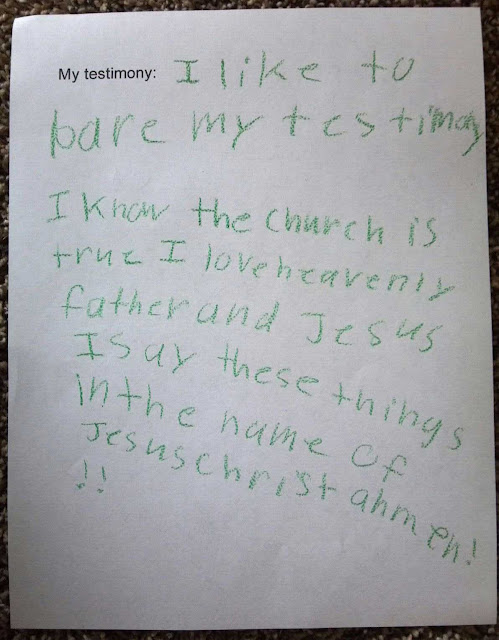 My testimony: I like to
bare my testimony
I know the church is
true I love heavenly
father and Jesus
I say these things
in the name of
Jesus christ ahmen!
!!